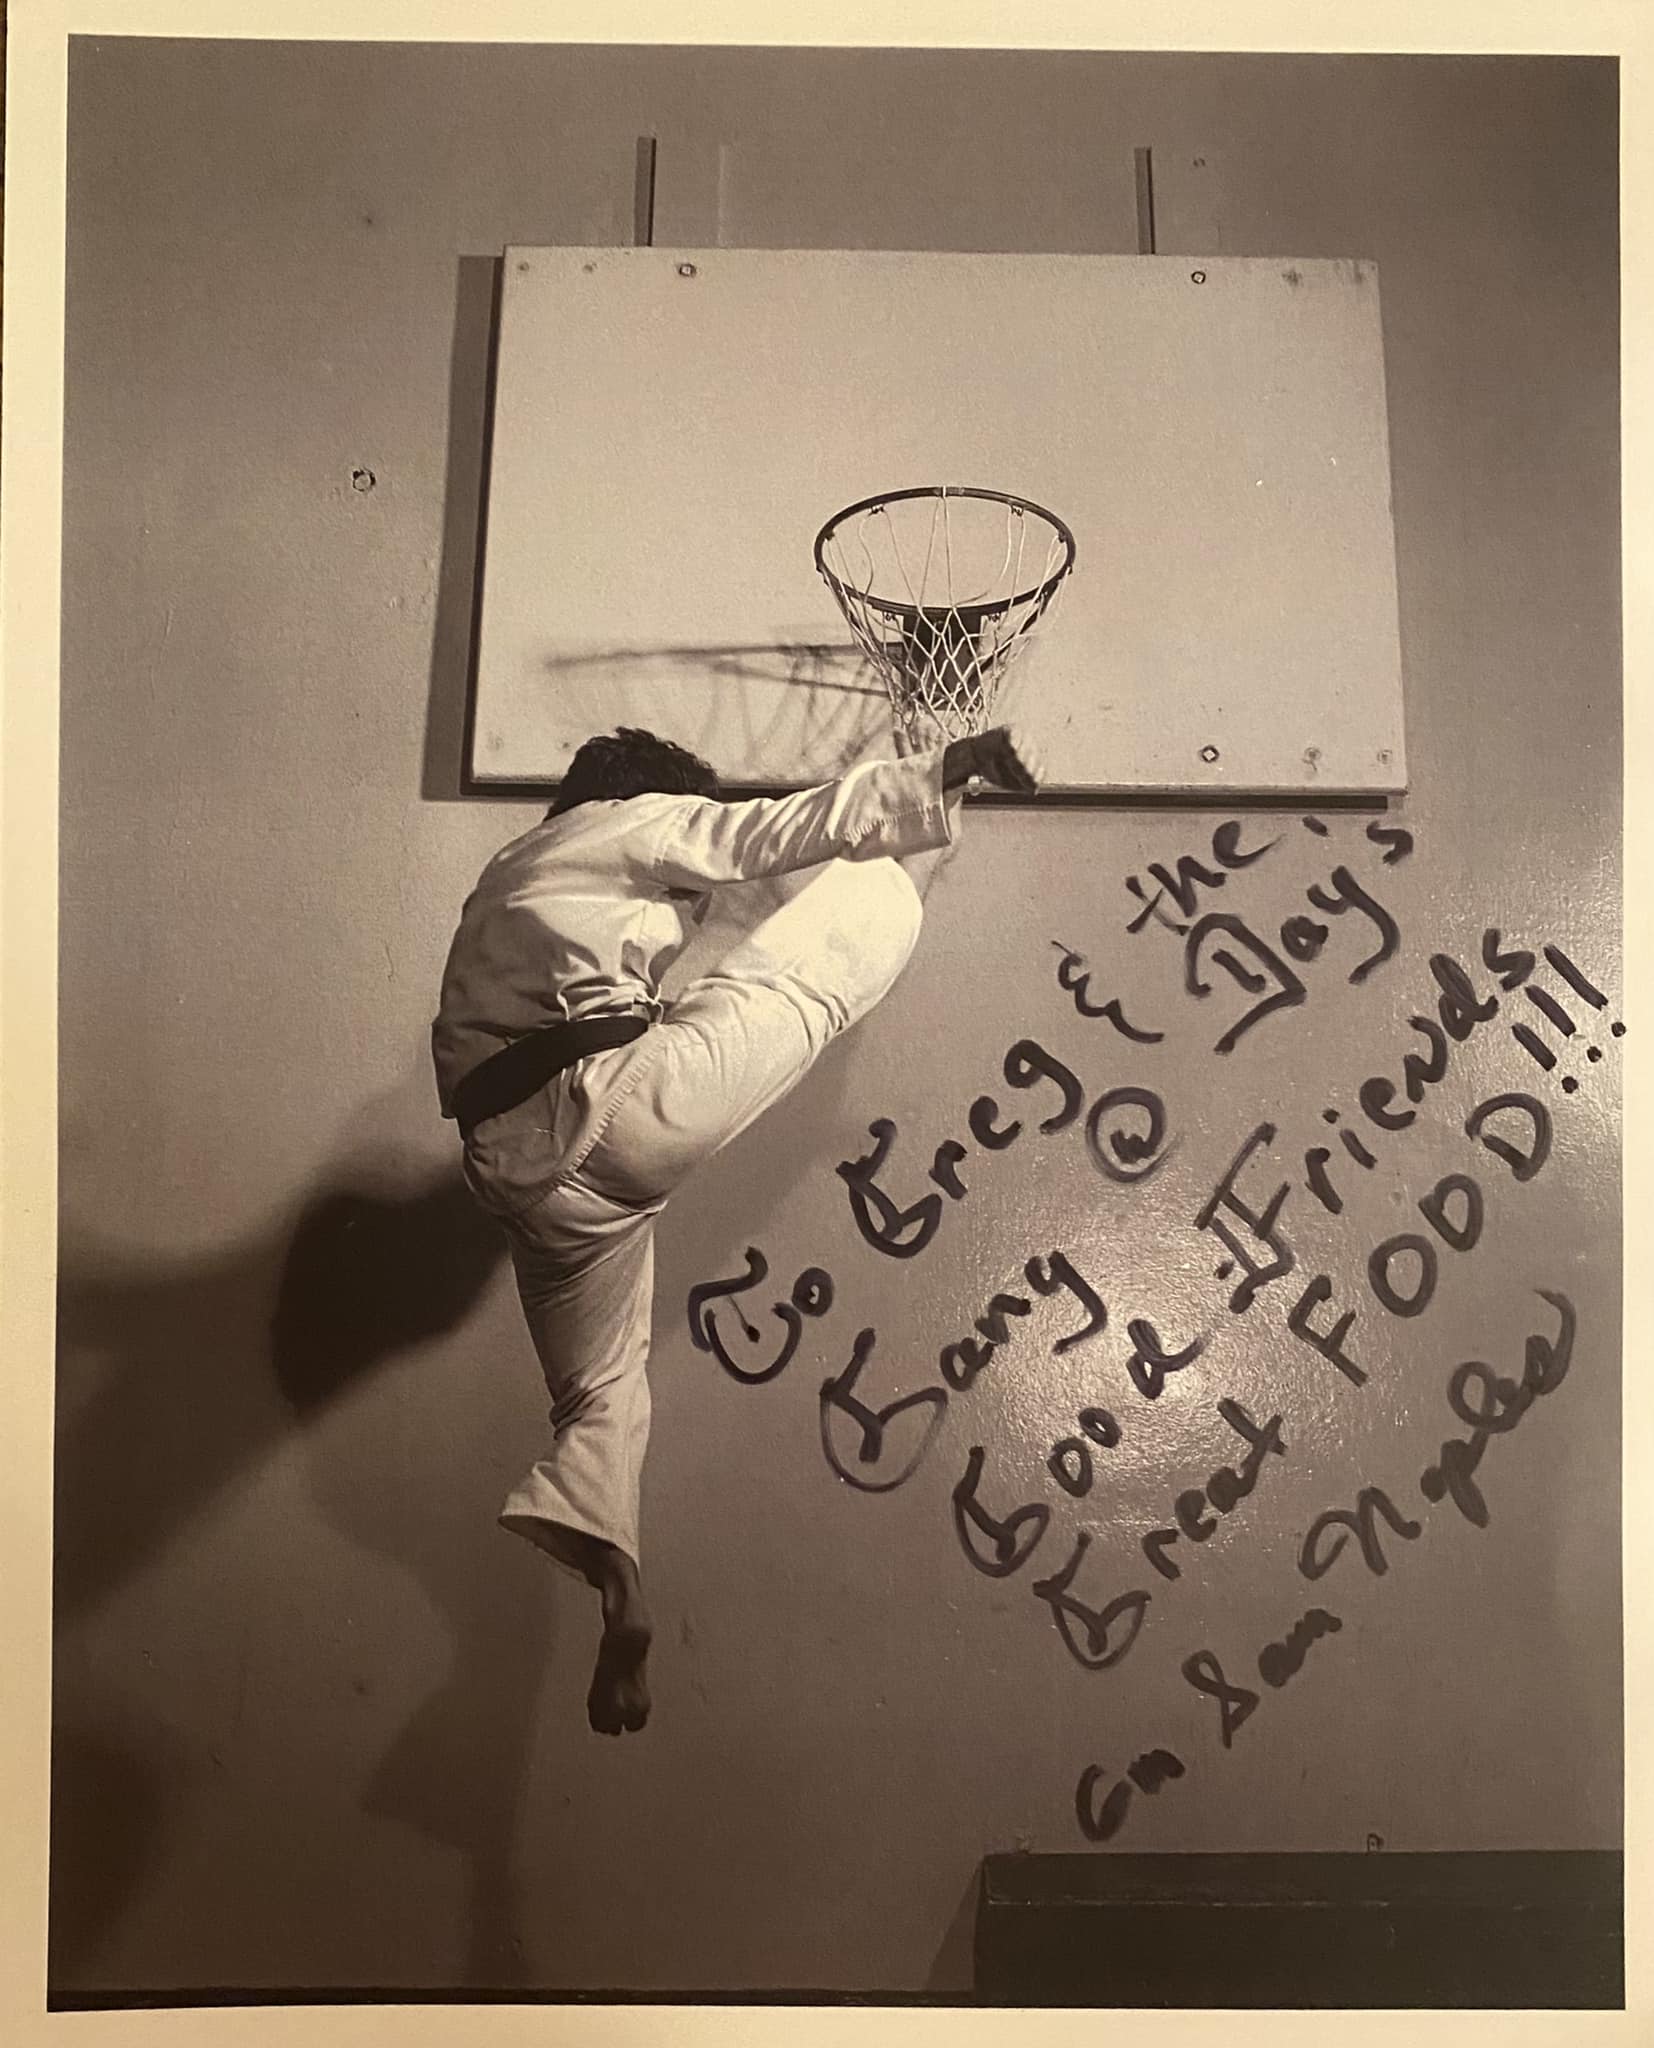 To Greg & the
Gang @ Day's
Good Friends
Great FOOD!!!
Gm Sam Naples